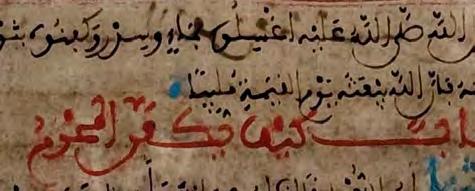 الله صلى الله عليه اغسلوه بماء وسدر وكفنوه
فان الله يبعثه يوم القيمة ملبيا
باب كيف يكفن المحرم